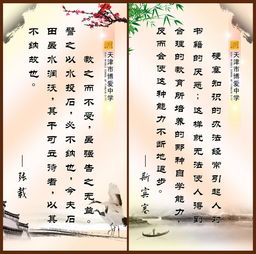 天津市博爱中学
教之而不受，虽强告之无益。
譬之以水投石，必不纳也，今夫石
田虽水润沃，其干可立待者，以其
不纳故也。
——张载
天津市博爱中学
硬塞知识的办法经常引起人对
书籍的厌恶；这样就无法使人得到
合理的教育所培养的那种自学能力，
反而会使这种能力不断地退步。
——斯宾塞